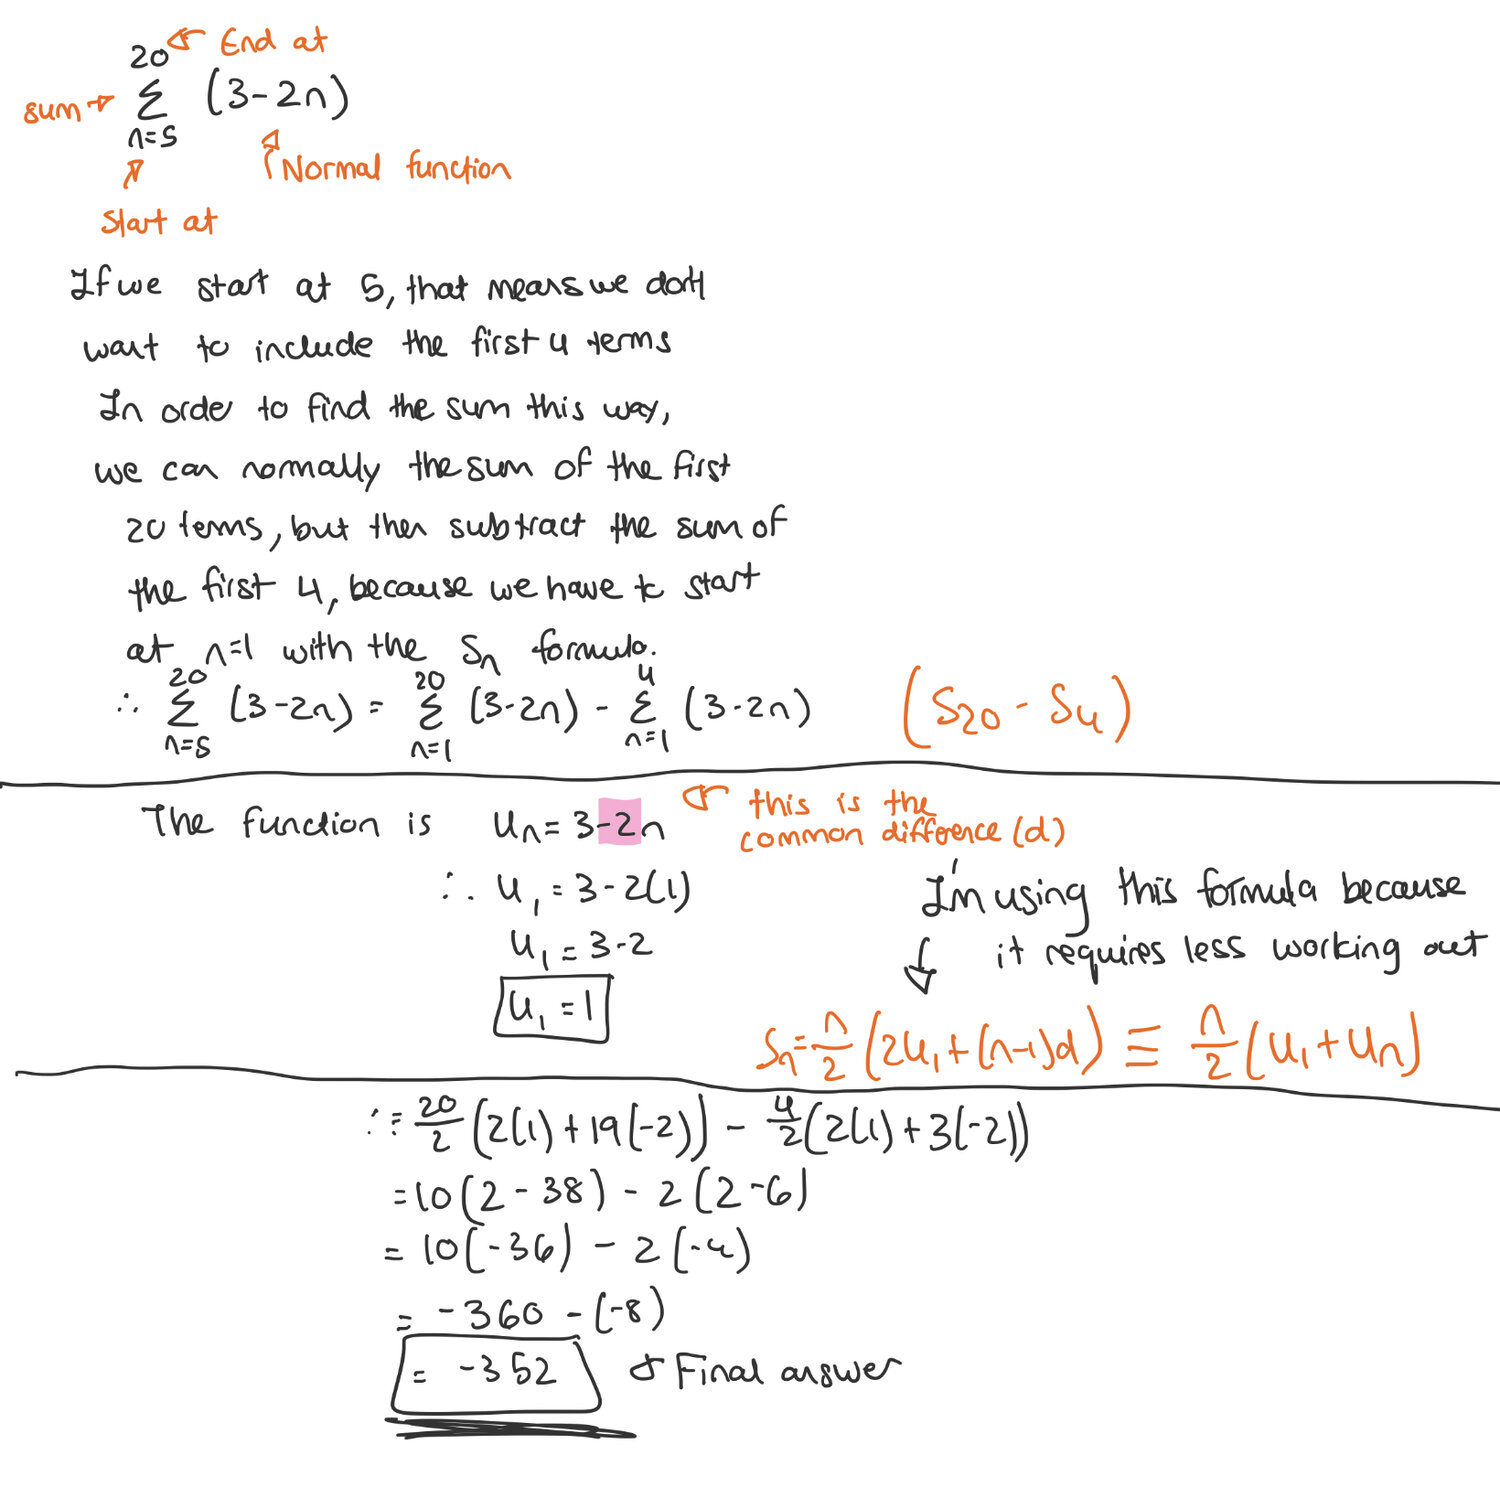 20 End at
sum → Σ (3-2n)
n=5
Normal function
Start at
If we start at 5, that means we don't
want to include the first 4 terms
In order to find the sum this way,
we can normally the sum of the first
20 terms, but then subtract the sum of
the first 4, because we have to start
at n=1 with the Sn formula.
20 20 4
∴ Σ (3-2n) = Σ (3-2n) - Σ (3-2n) (S₂₀ - S₄)
n=5 n=1 n=1
The function is Un = 3-2n this is the
common difference (d)
∴ U₁ = 3-2(1)
I'm using this formula because
U₁ = 3-2
it requires less working out
U₁ = 1
Sn = n/2 (2U₁ + (n-1)d) ≡ n/2 (U₁ + Un)
∴ = 20/2 (2(1) + 19(-2)) - 4/2 (2(1) + 3(-2))
= 10(2-38) - 2(2-6)
= 10(-36) - 2(-4)
= -360 - (-8)
= -352 Final answer